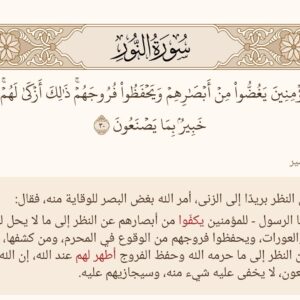 سُورَةُ النُّورِ
ؤْمِنِينَ يَغُضُّوا۟ مِنْ أَبْصَـٰرِهِمْ وَيَحْفَظُوا۟ فُرُوجَهُمْ ۚ ذَٰلِكَ أَزْكَىٰ لَهُمْ ۗ
خَبِيرٌۢ بِمَا يَصْنَعُونَ ٣٠
النظر بريدًا إلى الزنى، أمر الله بغض البصر للوقاية منه، فقال:
ا الرسول - للمؤمنين يكفّوا من أبصارهم عن النظر إلى ما لا يحل ل
والعورات، ويحفظوا فروجهم من الوقوع في المحرم، ومن كشفها،
ن النظر إلى ما حرمه الله وحفظ الفروج أطهر لهم عند الله، إن الله
عون، لا يخفى عليه شيء منه، وسيجازيهم عليه.